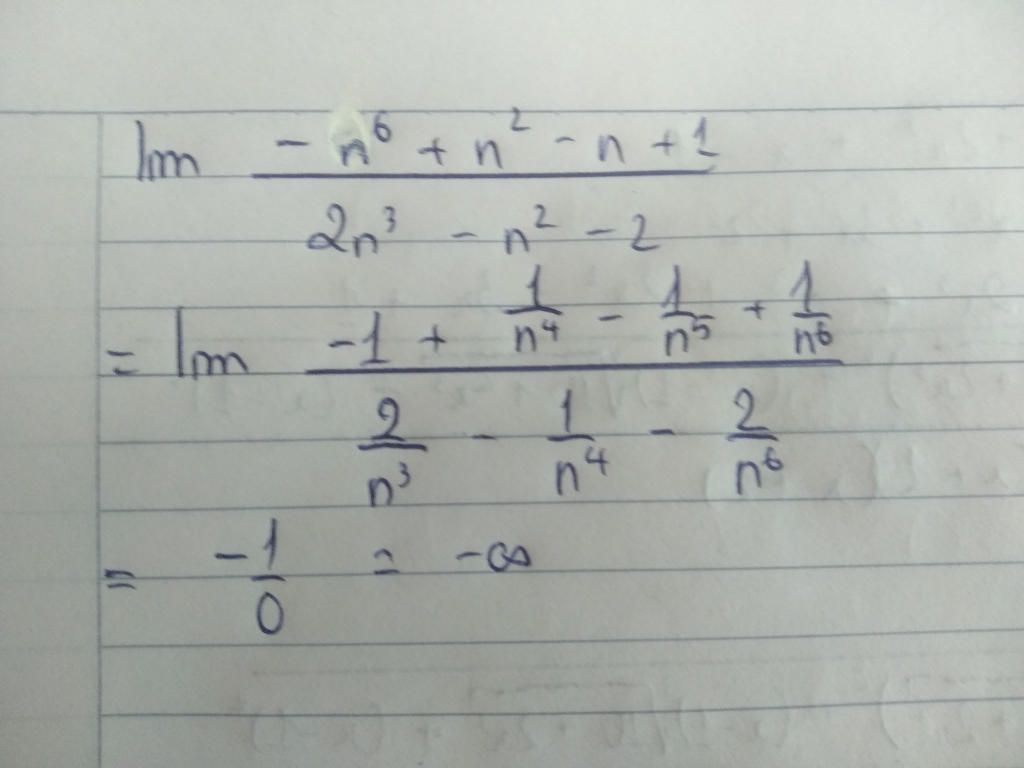 lim (-n⁶ + n² - n + 1) / (2n³ - n² - 2)
= lim (-1 + 1/n⁴ - 1/n⁵ + 1/n⁶) / (2/n³ - 1/n⁴ - 2/n⁶)
= -1/0 = -∞